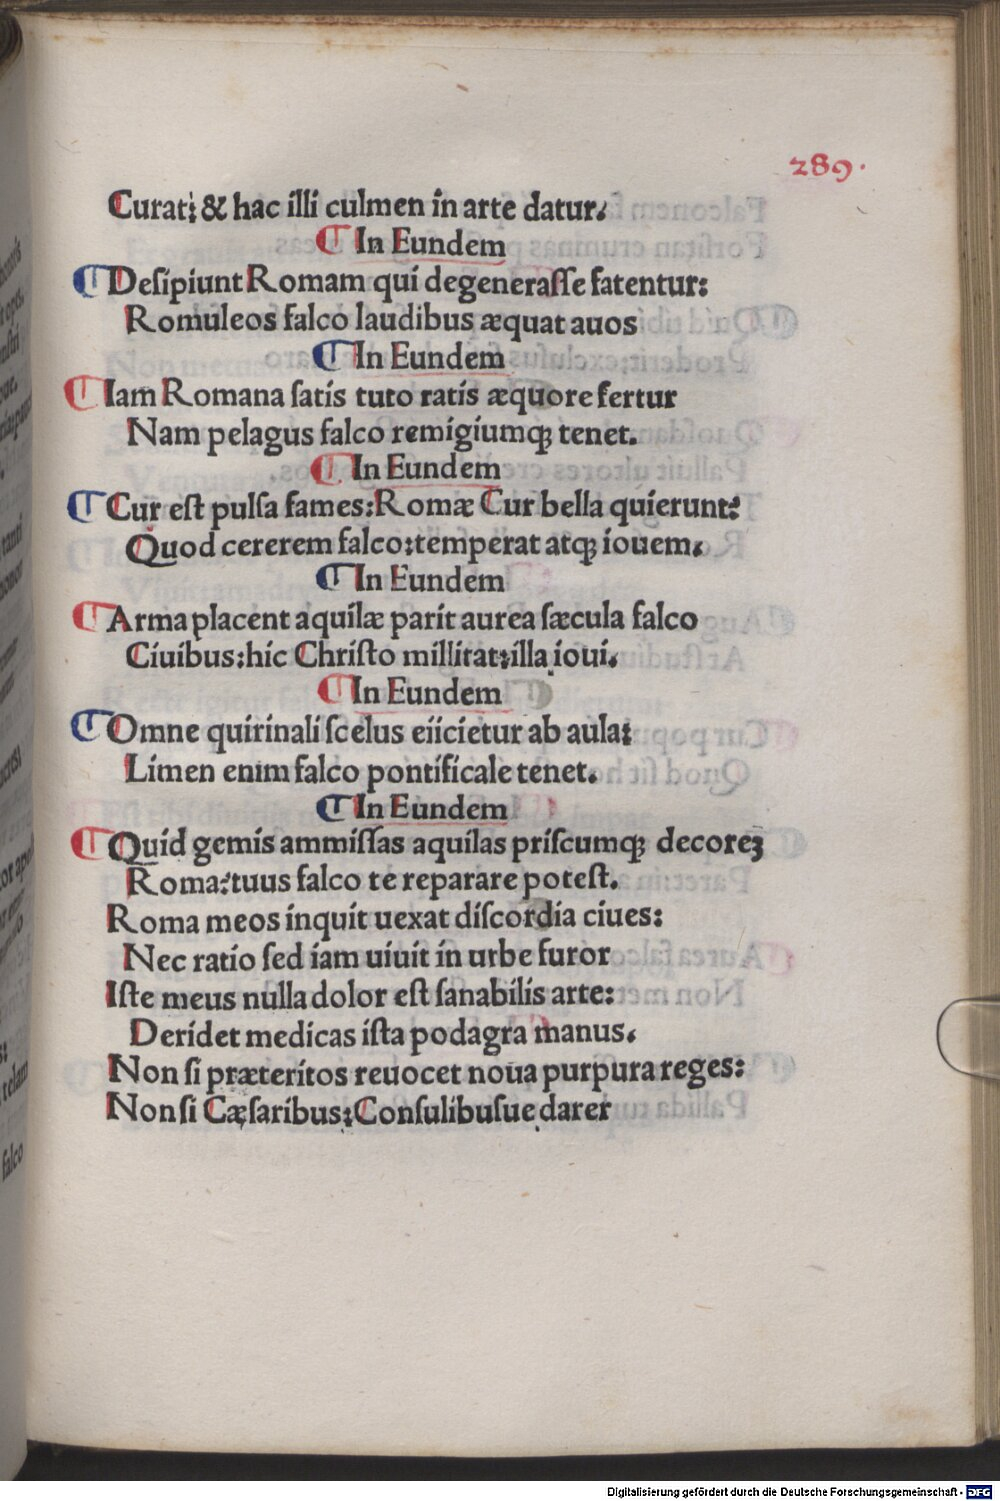 289.
Curat: & hac illi culmen in arte datur.
¶ In Eundem
¶ Desipiunt Romam qui degenerasse fatentur:
Romuleos falco laudibus æquat auos
¶ In Eundem
¶ Iam Romana satis tuto ratis æquore fertur
Nam pelagus falco remigiumqꝫ tenet.
¶ In Eundem
¶ Cur est pulsa fames: Romæ Cur bella quierunt:
Quod cererem falco: temperat atqꝫ iouem.
¶ In Eundem
¶ Arma placent aquilæ parit aurea sæcula falco
Ciuibus: hic Christo millitat: illa ioui.
¶ In Eundem
¶ Omne quirinali scelus eiicietur ab aula:
Limen enim falco pontificale tenet.
¶ In Eundem
¶ Quid gemis ammissas aquilas priscumqꝫ decoreꝫ
Roma: tuus falco te reparare potest.
Roma meos inquit uexat discordia ciues:
Nec ratio sed iam uiuit in urbe furor
Iste meus nulla dolor est sanabilis arte:
Deridet medicas ista podagra manus.
Non si præteritos reuocet noua purpura reges:
Non si Cæsaribus: Consulibusue darer
Digitalisierung gefördert durch die Deutsche Forschungsgemeinschaft - DFG